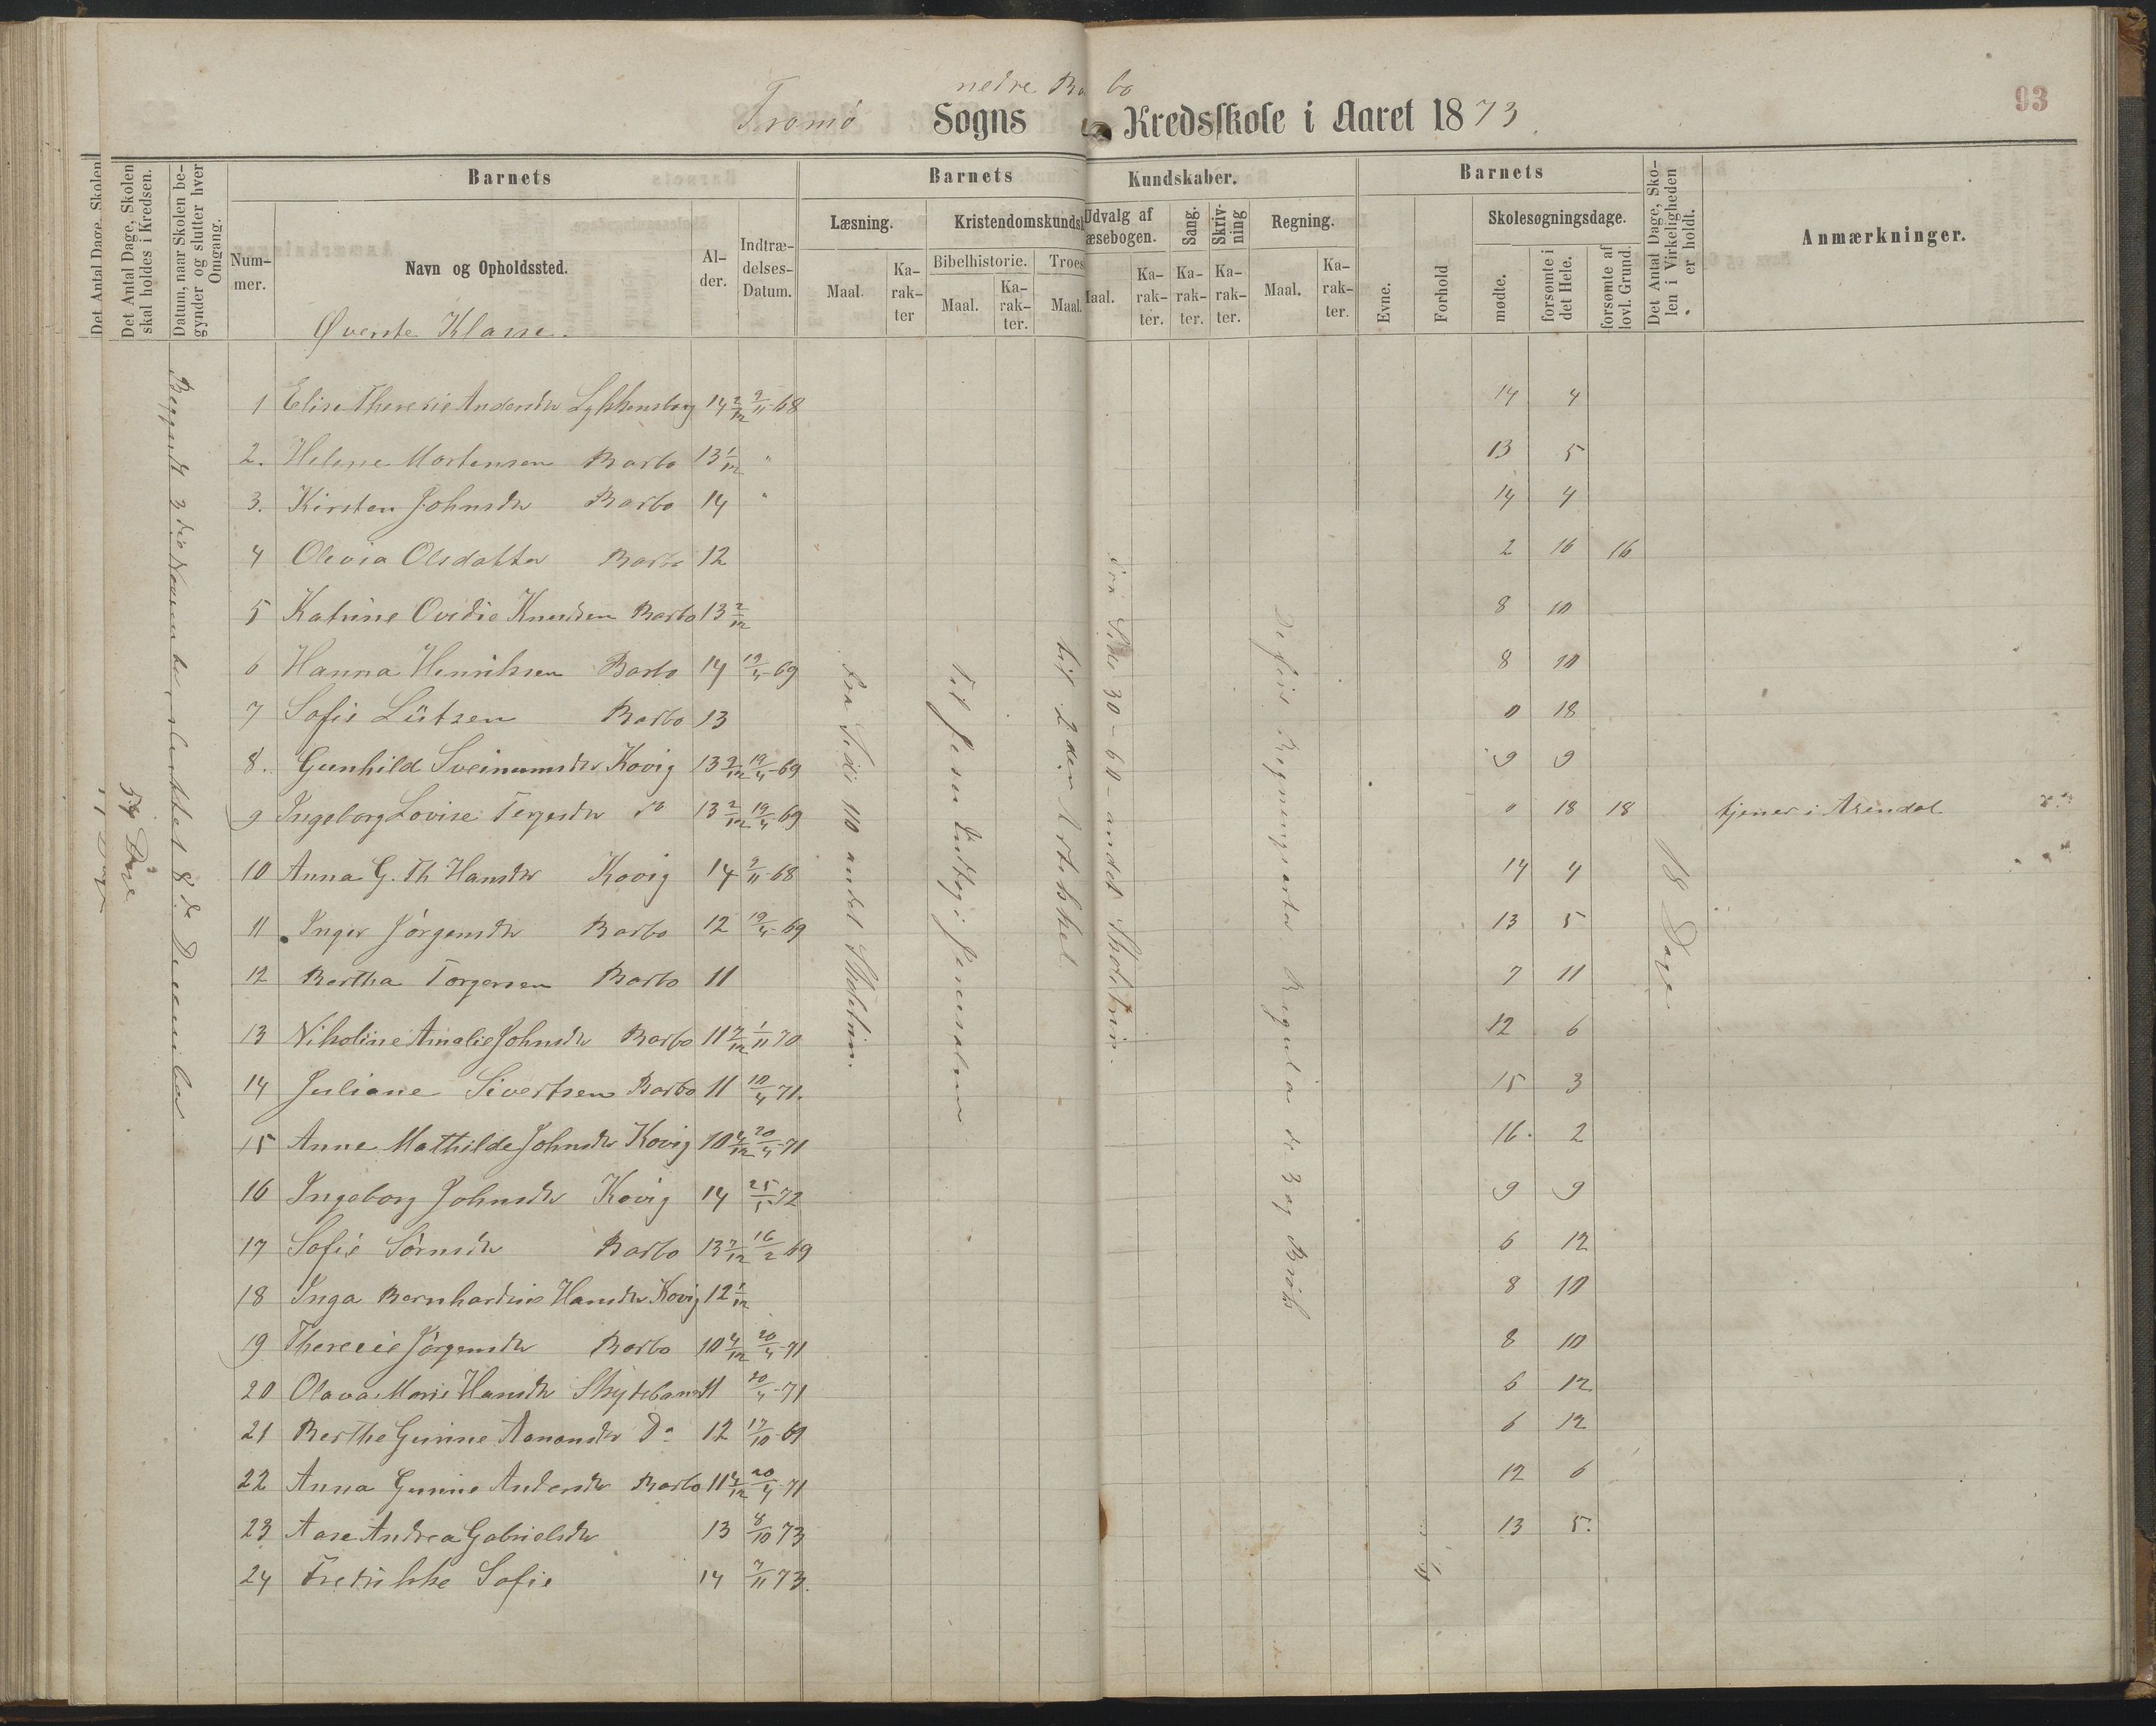 nedre Barbo
Tromø Sogns Kredsskole i Aaret 1873
93
Det Antal Dage, Skolen
Det Antal Dage, Skolen skal holdes i Kredsen.
Datum, naar Skolen begynder og slutter hver Omgang.
Barnets
Barnets
Kundskaber.
Barnets
Det Antal Dage, Skolen i Virkeligheden er holdt.
Anmærkninger.
Nummer.
Navn og Opholdssted.
Alder.
Indtrædelses-Datum.
Læsning.
Kristendomskundsk
Udvalg af
æsebogen.
Sang.
Skrivning
Regning.
Evne.
Forhold
Skolesøgningsdage.
Bibelhistorie.
Troes
Maal.
Karakter
Maal.
Karakter.
Maal.
Maal.
Karakter.
Karakter.
Karakter.
Maal.
Karakter.
mødte.
forsømte i det Hele.
forsømte af lovl. Grund.
Øverste Klasse.
1 Elise Theresie Andersdtr Lykkensborg 14 2/12 9/11-68 14 4
2. Helene Mortensen Barbo 13 1/12 " 13 5
3. Kirsten Johnsdtr Barbo 14 " 14 4
4 Olivia Olsdatter Barbo 12 2 16 16
5 Katrine Ovidie Knudsen Barbo 13 2/12 8 10
6 Hanna Henriksen Barbo 14 19/4-69 8 10
7 Sofie Lützen Barbo 13 0 18
8. Gunhild Sveinumsdtr Kovig 13 2/12 19/4-69 9 9
9 Ingeborg Lovise Terjesdtr do 13 2/12 19/4-69 0 18 18 tjener i Arendal
10 Anna G. Th Hansdtr Kovig 14 9/11-68 14 4
11 Inger Jørgensdtr Barbo 12 19/4-69 13 5
12 Bertha Torgersen Barbo 11 7 11
13 Nikoline Amalie Johnsdtr Barbo 11 7/12 1/11 70 12 6
14 Juliane Sivertsen Barbo 11 10/4 71. 15 3
15 Anne Mathilde Johnsdtr Kovig 10 4/12 20/4-71 16. 2
16 Ingeborg Johnsdtr Kovig 14 25/5 72 9 9
17 Sofie Sørensdtr Barbo 13 7/12 16/2 69 6 12
18 Inga Bernhardine Hansdtr Kovig 12 1/12 8 10
19 Theresie Jørgensdtr Barbo 10 4/12 20/4-71 8 10
20 Olava Marie Hansdtr 11 20/4-71 6 12
21 Berthe Gurine Aanonsdtr Do 12 17/10-69 6 12
22 Anna Gurine Andersdtr Barbo 11 4/12 20/4-71 12 6
23 Aase Andrea Gabrielsdtr 13 8/10 73 13 5.
24 Fredrikke Sofie 14 7/11 73.
54 Dage
Begyndt 3die November, sluttet 8de December
Fra Side 110 andet Skoletrin.
Til Jesu Indtog i Jerusalem
til 2den Artikkel
fra Side 30-60-andet Skoletrin.
De fire Regningsarter Regula de 3 og Brøk
18 Dage.